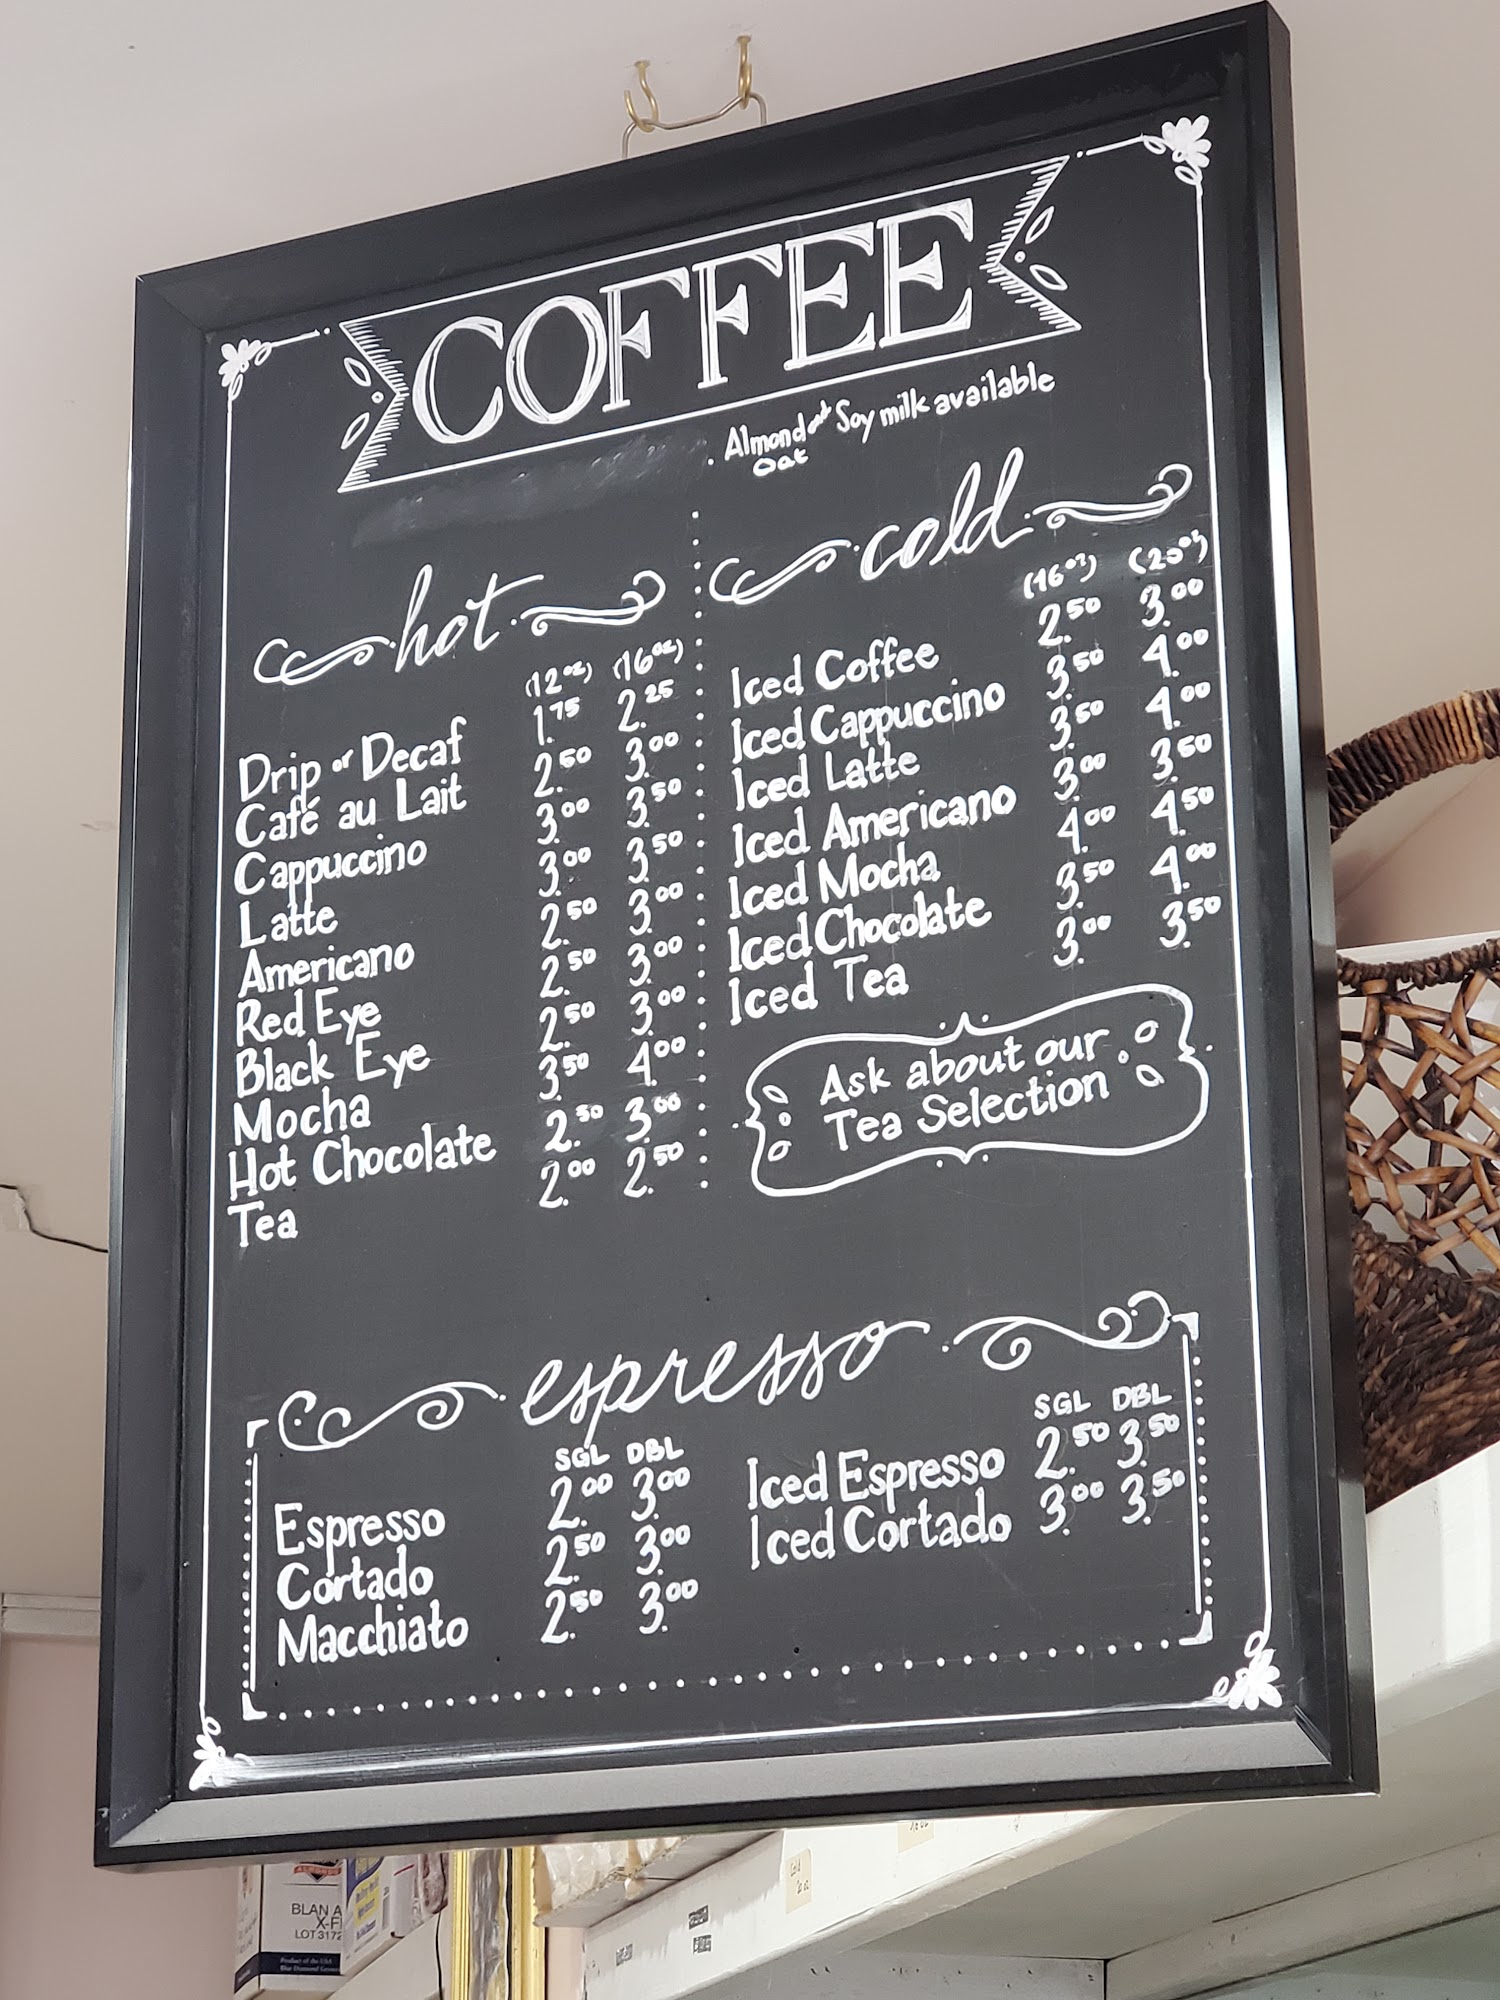 COFFEE
Almond and Soy milk available
Oat
hot
(12oz) (16oz)
Drip or Decaf 1.75 2.25
Café au Lait 2.50 3.00
Cappuccino 3.00 3.50
Latte 3.00 3.50
Americano 2.50 3.00
Red Eye 2.50 3.00
Black Eye 2.50 3.00
Mocha 3.50 4.00
Hot Chocolate 2.50 3.00
Tea 2.00 2.50
cold
(16oz) (20oz)
Iced Coffee 2.50 3.00
Iced Cappuccino 3.50 4.00
Iced Latte 3.50 4.00
Iced Americano 3.00 3.50
Iced Mocha 4.00 4.50
Iced Chocolate 3.50 4.00
Iced Tea 3.00 3.50
Ask about our
Tea Selection
espresso
SGL DBL
Espresso 2.00 3.00
Cortado 2.50 3.00
Macchiato 2.50 3.00
SGL DBL
Iced Espresso 2.50 3.50
Iced Cortado 3.00 3.50
BLAN
LOT 3172
Product of the USA